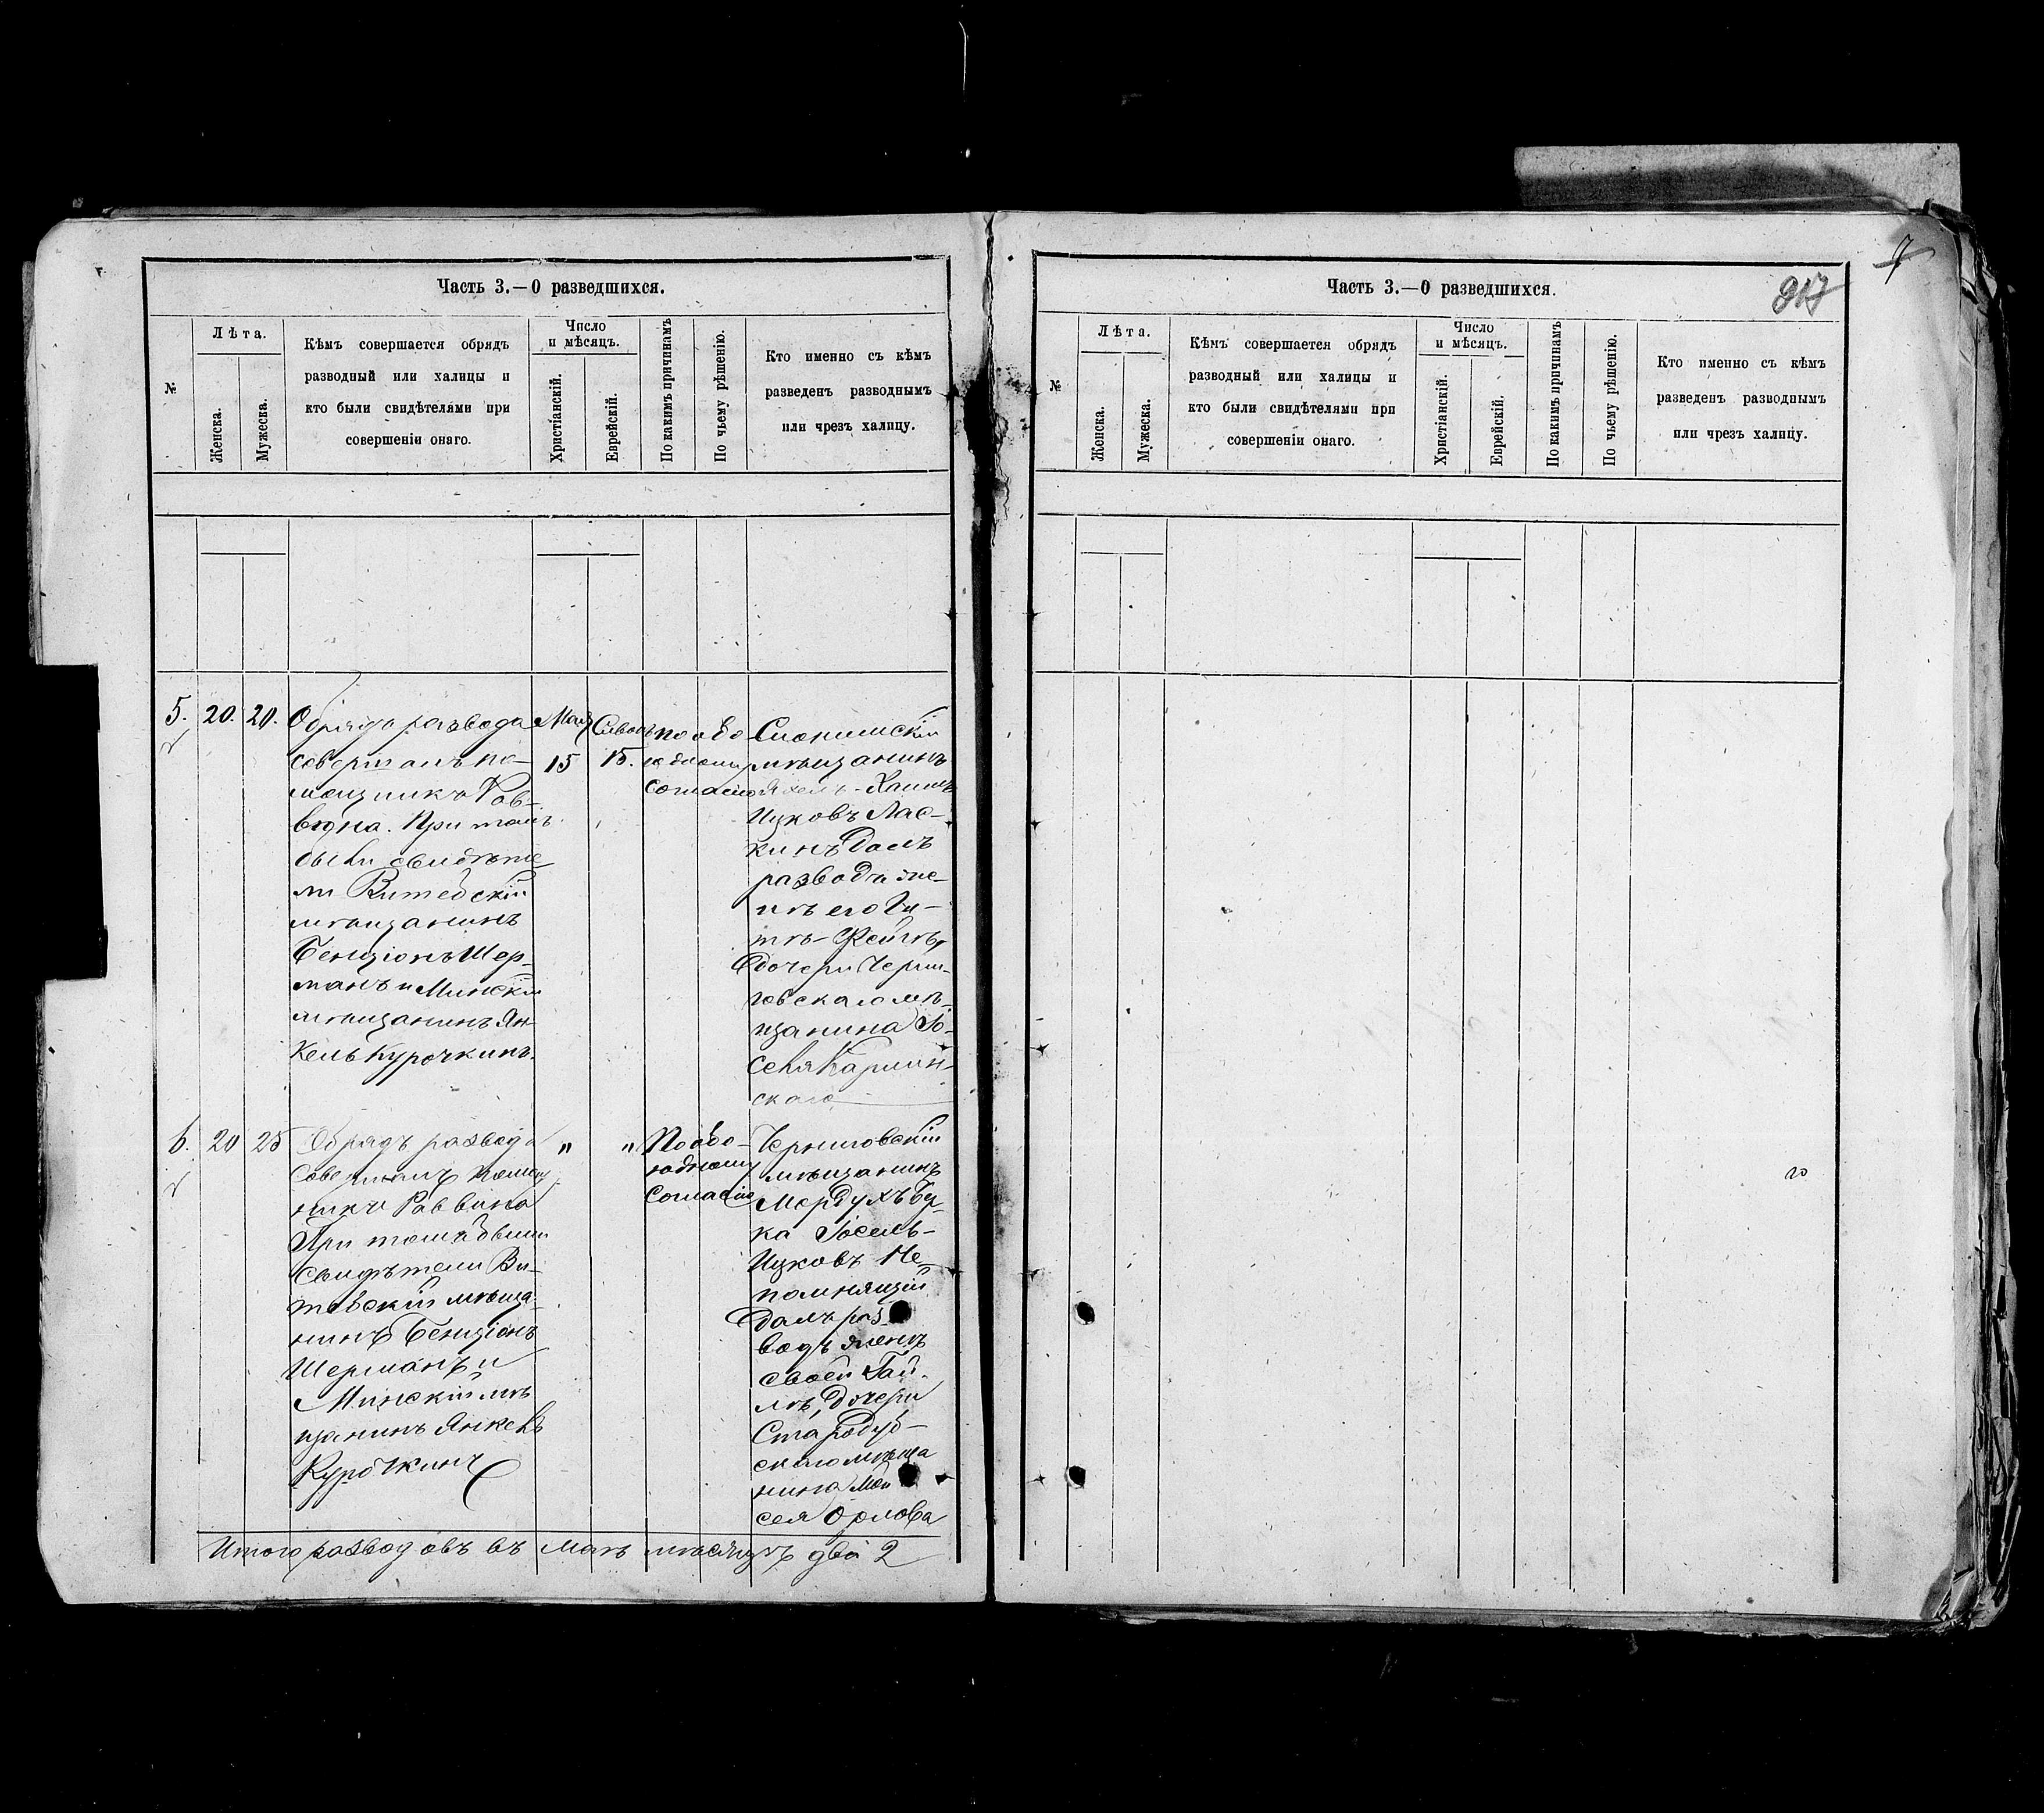 Часть 3.—О разведшихся.
№
Лѣта.
Женска.
Мужеска.
Кѣмъ совершается обрядъ
разводный или халицы и
кто были свидѣтелями при
совершеніи онаго.
Число
и мѣсяцъ.
Христіанскій.
Еврейскій.
По какимъ причинамъ
По чьему рѣшенію.
Кто именно съ кѣмъ
разведенъ разводнымъ
или чрезъ халицу.
5.
20.
20.
Обрядъ развода
совершалъ по-
мощникъ Рав-
вина. При томъ
были свидѣте
ли Витебскій
мѣщанинъ
Бенціонъ Шер-
манъ и Минскій
мѣщанинъ Ян-
кель Курочкинъ.
Мая
15
Сивонъ
15.
по обо
юдному
согласію
Слонимскій
мѣщанинъ
Хаимъ
Ицковъ Лас-
кинъ далъ
разводъ же-
нѣ его Ги-
тѣ-Фейгѣ,
дочери Черни-
говскаго мѣ-
щанина Іо-
селя Карлин-
скаго
6.
20
25
Обрядъ развода
совершалъ помощ
никъ Раввина
При томъ были
свидѣтели Ви-
тебскій мѣща-
нинъ Бенціонъ
Шерманъ и
Минскій мѣ
щанинъ Янкель
Курочкинъ
"
"
По обо-
юдному
согласію
Черниговскій
мѣщанинъ
Мордухъ Бер-
ка Іосель-
Ицковъ Не-
помнящій
далъ раз-
водъ женѣ
своей Гай-
лѣ, дочери
Стародуб-
скаго мѣща
нина Мои
сея Орлова
Итого разводовъ въ маѣ мѣсяцѣ два 2
7
Часть 3.—О разведшихся.
917
№
Лѣта.
Женска.
Мужеска.
Кѣмъ совершается обрядъ
разводный или халицы и
кто были свидѣтелями при
совершеніи онаго.
Число
и мѣсяцъ.
Христіанскій.
Еврейскій.
По какимъ причинамъ
По чьему рѣшенію.
Кто именно съ кѣмъ
разведенъ разводнымъ
или чрезъ халицу.